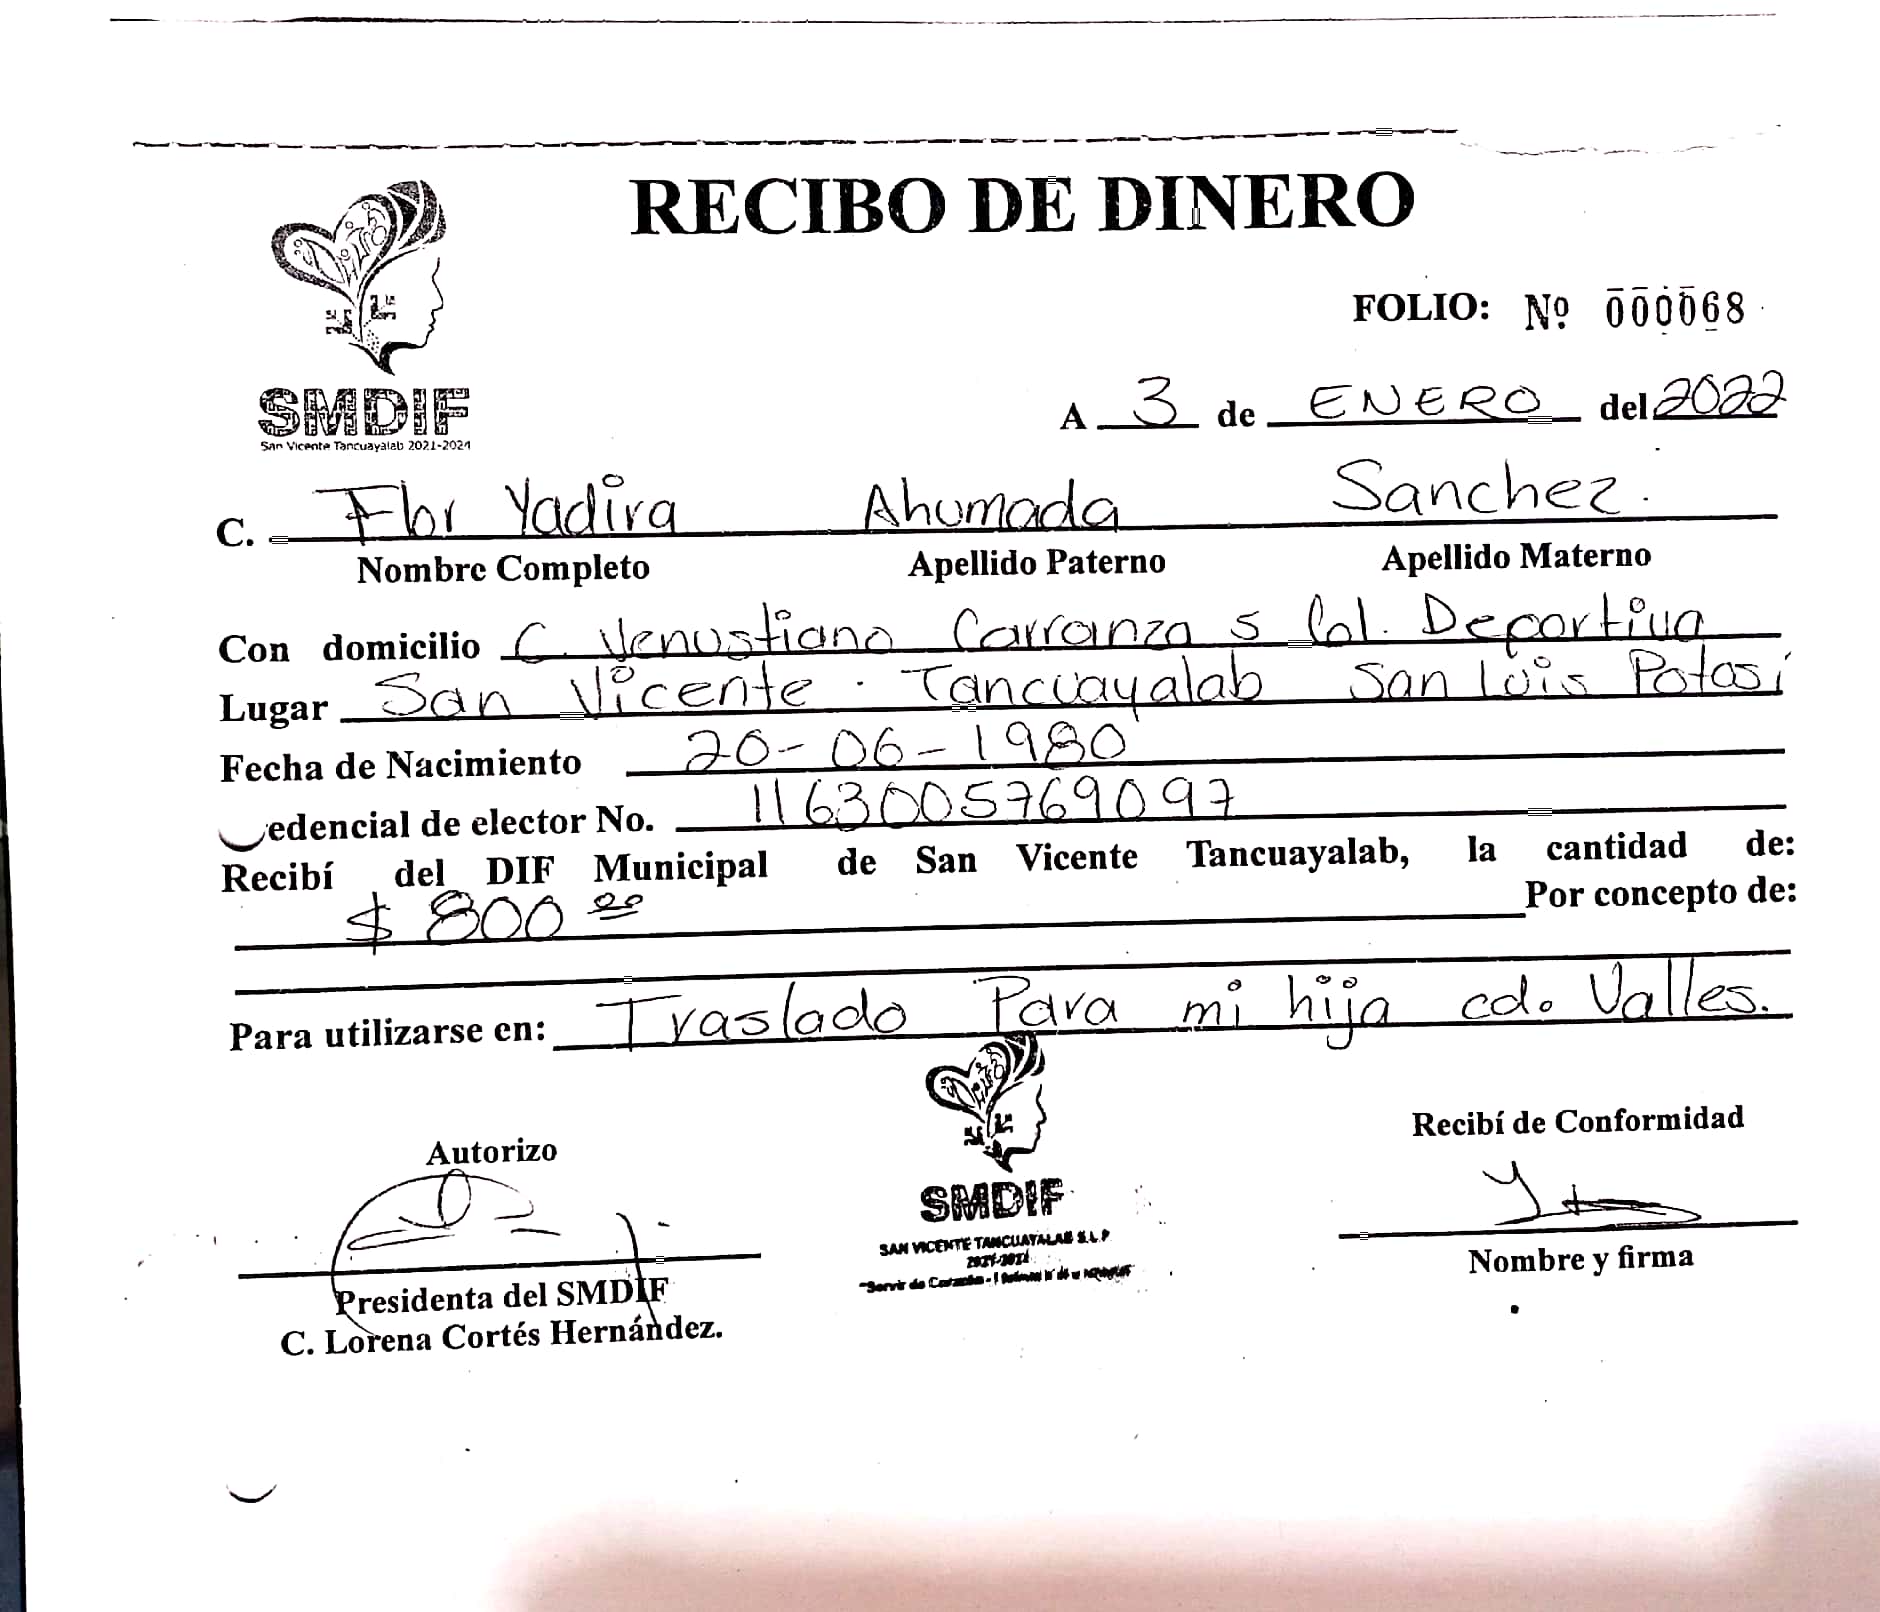 RECIBO DE DINERO
FOLIO: Nº 000068
SMDIF
San Vicente Tancuayalab 2021-2024
A 3 de ENERO del 2022
C. Flor Yadira Ahumada Sanchez.
Nombre Completo Apellido Paterno Apellido Materno
Con domicilio C. Venustiano Carranza S Col. Deportiva
Lugar San Vicente. Tancuayalab San Luis Potosí
Fecha de Nacimiento 20-06-1980
edencial de elector No. 1163005769097
Recibí del DIF Municipal de San Vicente Tancuayalab, la cantidad de:
$ 800 00 Por concepto de:
Para utilizarse en: Traslado Para mi hija cd. Valles.
Autorizo
Recibí de Conformidad
SMDIF
SAN VICENTE TANCUAYALAB S.L.P
2021-2024
"Servir de Corazón -
Nombre y firma
Presidenta del SMDIF
C. Lorena Cortés Hernández.